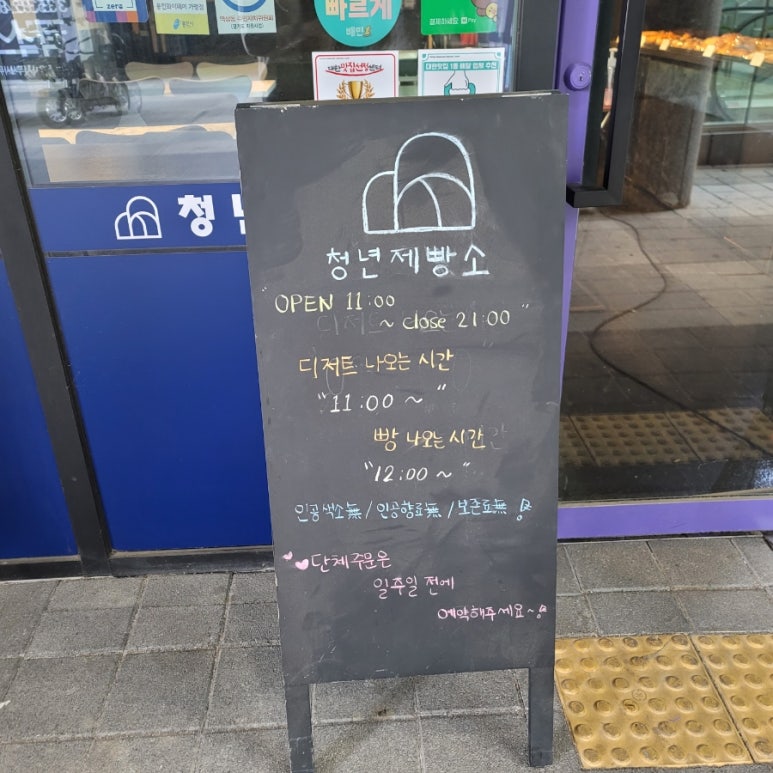 빠르게
배민
Pay
대한맛집선정센터
청년
청년제빵소
OPEN 11:00
~ close 21:00"
디저트 나오는 시간
"11:00 ~ "
빵 나오는 시간
"12:00 ~ "
인공색소無 / 인공향료無 / 보존료無
단체주문은
일주일 전에
예약해주세요~